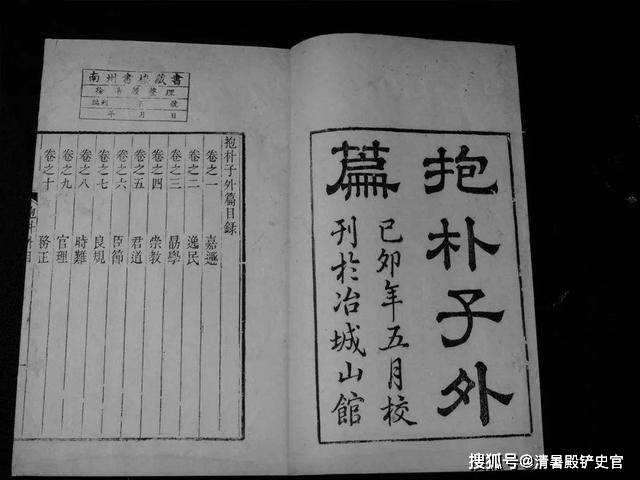 抱朴子外
篇
己卯年五月校
刊於冶城山館
南州書樓藏書
整理
字 號
年 月 日
抱朴子外篇目錄
卷之一 嘉遯
卷之二 逸民
卷之三 勗學
卷之四 崇教
卷之五 君道
卷之六 臣節
卷之七 良規
卷之八 時難
卷之九 官理
卷之十 務正
搜狐号@清暑殿铲史官